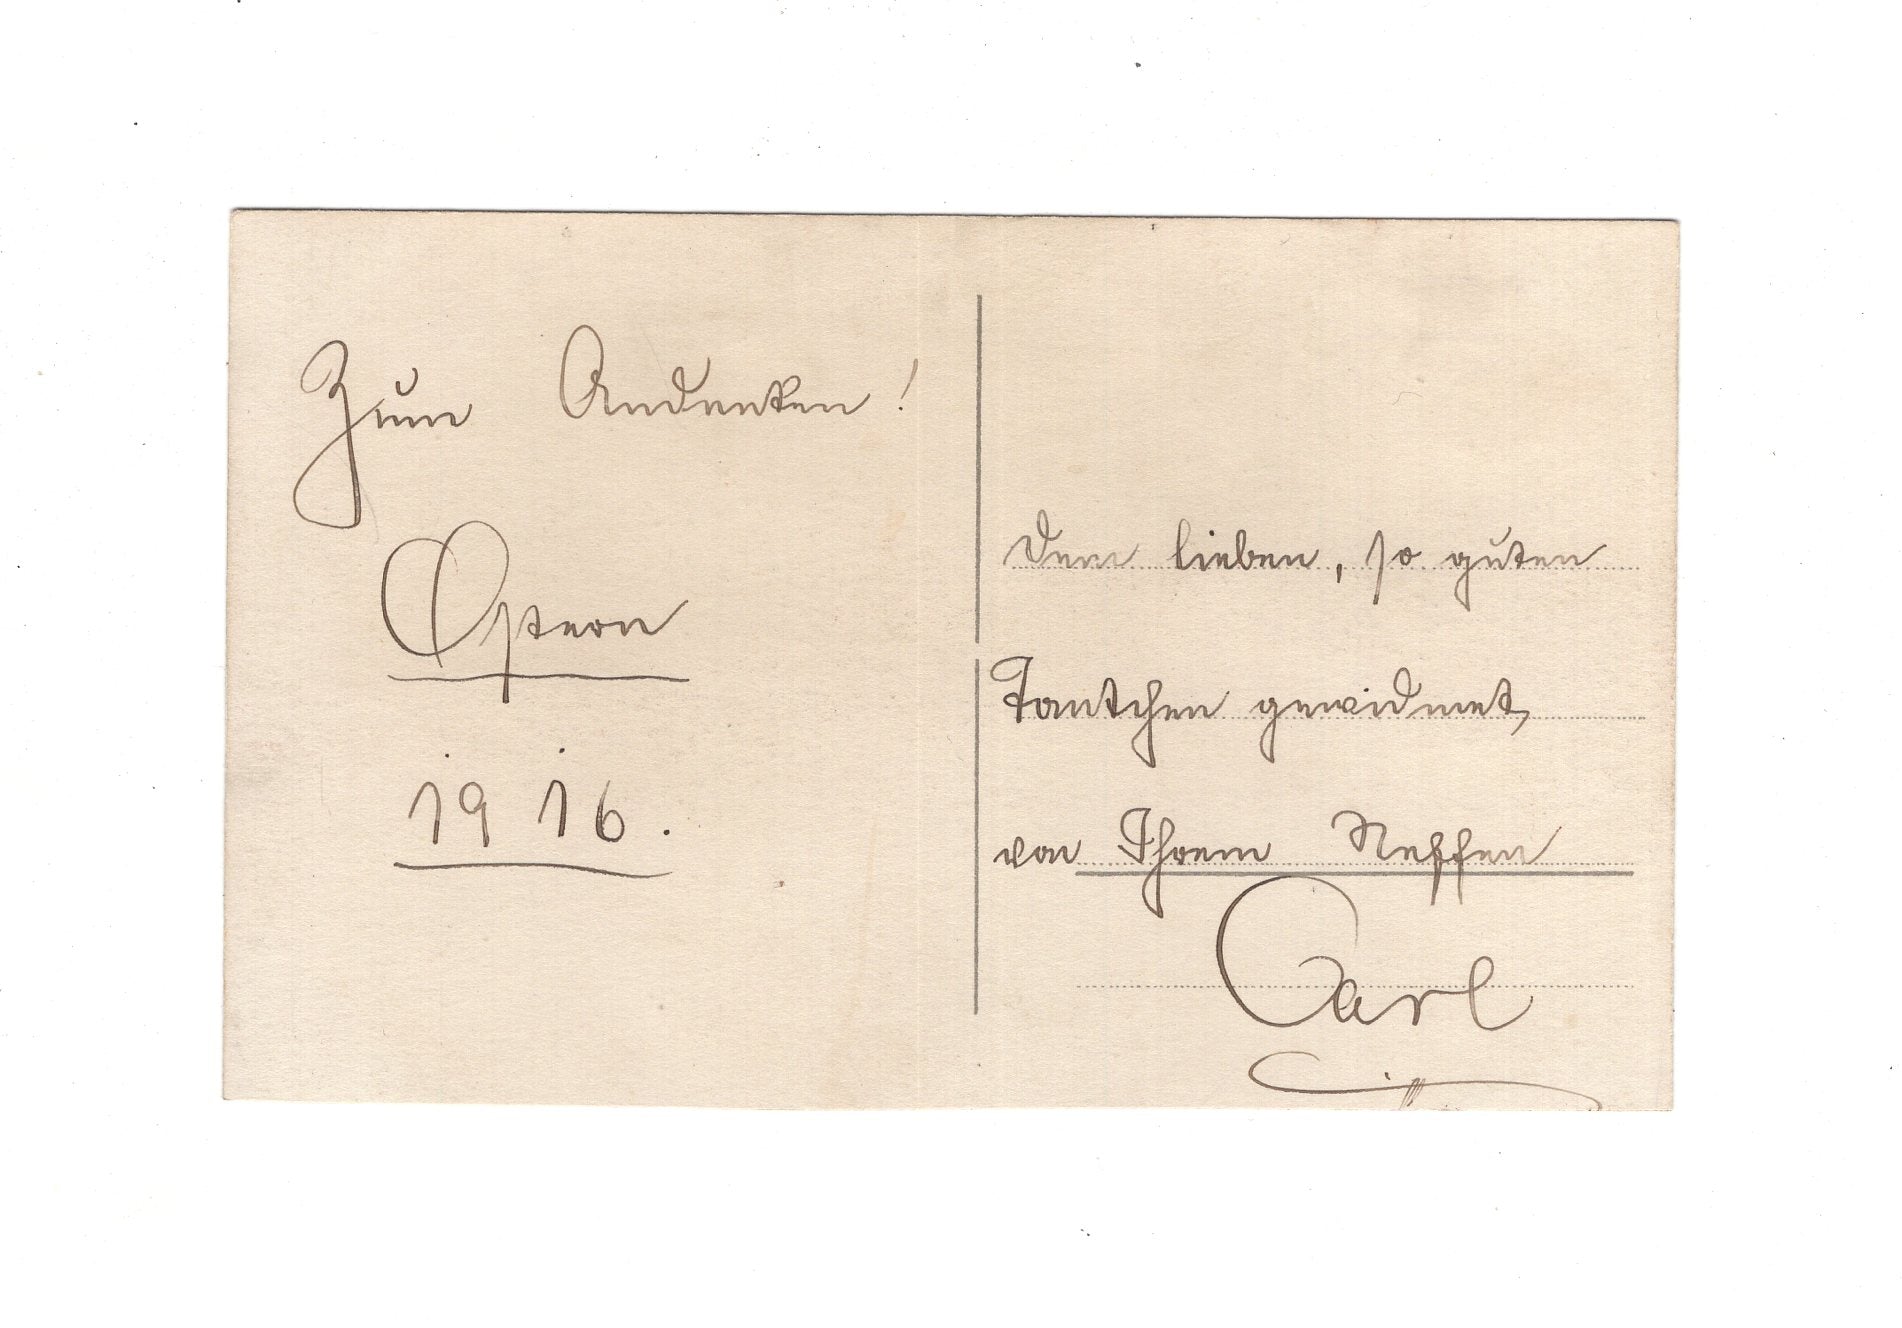 Zum Andenken!
Ostern
1916.
Dem lieben, so guten
Tantchen gewidmet,
von Ihrem Neffen
Carl